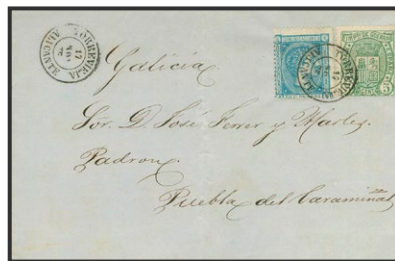 TORREVIEJA
17
ALICANTE
TORREVIEJA
ALICANTE
5
Galicia
Sor. D. José Ferrer y Harles.
Padron
Puebla del Caramiñal